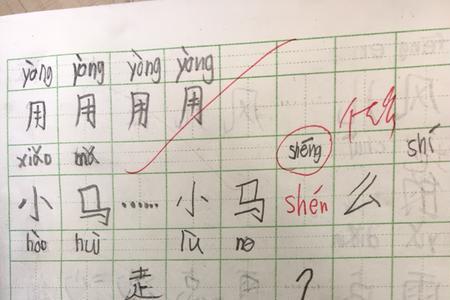 yòng yòng yòng yòng
用 用 用 用
xiǎo mǎ shéng shí
小 马 …… 小 马 shén 么
hǎo huì lù
走 ?